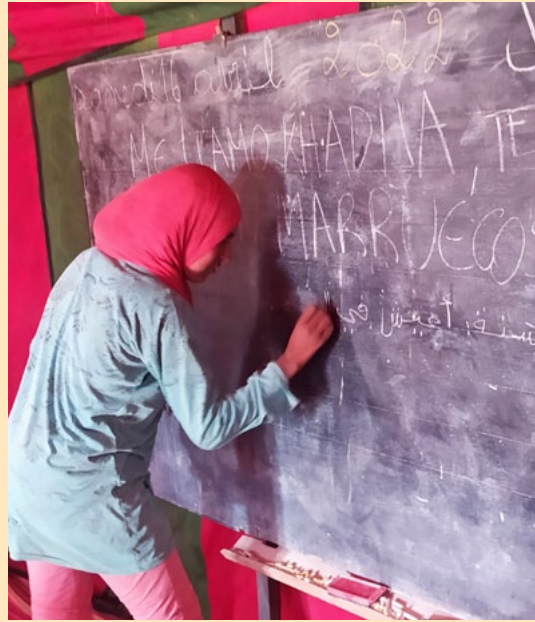 samedi 16 avril 2022
ME LLAMO KHADIJA, TE
MARRUECOS
سنة, أعيش في